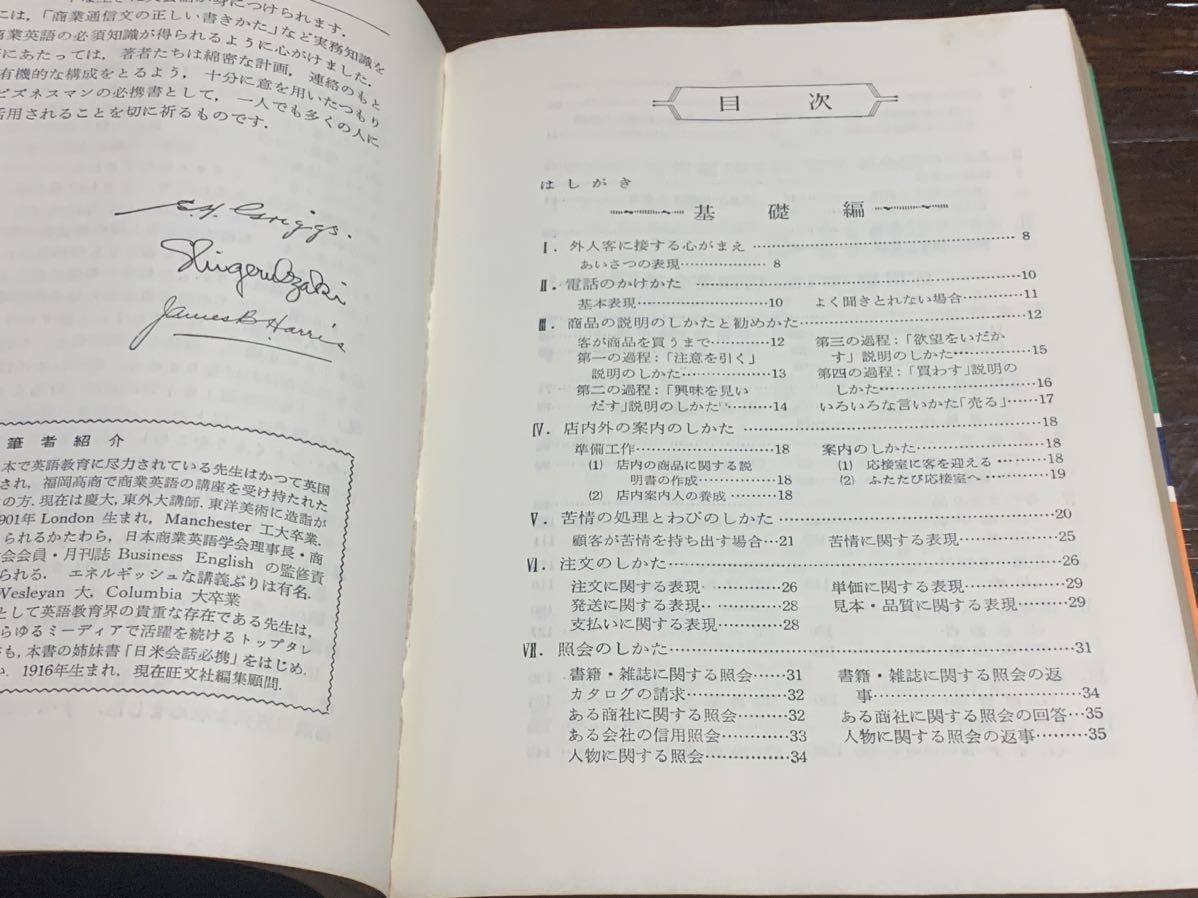 には，「商業通信文の正しい書きかた」など実務知識を
商業英語の必須知識が得られるように心がけました．
にあたっては，著者たちは綿密な計画，連絡のもと
有機的な構成をとるよう，十分に意を用いたつもり
ビズネスマンの必携書として，一人でも多くの人に
活用されることを切に祈るものです．
E. H. Griggs.
Shigeru Ozaki
James B. Harris
筆者紹介
本で英語教育に尽力されている先生はかつて英国
され，福岡高商で商業英語の講座を受け持たれた
の方．現在は慶大，東外大講師．東洋美術に造詣が
901年 London 生まれ，Manchester 工大卒業．
られるかたわら，日本商業英語学会理事長・商
会会員・月刊誌 Business English の監修責
られる． エネルギッシュな講義ぶりは有名．
Wesleyan 大，Columbia 大卒業
として英語教育界の貴重な存在である先生は，
らゆるミーディアで活躍を続けるトップタレ
も，本書の姉妹書「日米会話必携」をはじめ．
か．1916年生まれ，現在旺文社編集顧問．
目次
はしがき
基礎編
Ⅰ．外人客に接する心がまえ……8
あいさつの表現……8
Ⅱ．電話のかけかた……10
基本表現……10
よく聞きとれない場合……11
Ⅲ．商品の説明のしかたと勧めかた……12
客が商品を買うまで……12
第一の過程：「注意を引く」
説明のしかた……13
第二の過程：「興味を見い
だす」説明のしかた……14
第三の過程：「欲望をいだか
す」説明のしかた……15
第四の過程：「買わす」説明の
しかた……16
いろいろな言いかた「売る」……17
Ⅳ．店内外の案内のしかた……18
準備工作……18
(1) 店内の商品に関する説
明書の作成……18
(2) 店内案内人の養成……18
案内のしかた……18
(1) 応接室に客を迎える……18
(2) ふたたび応接室へ……19
Ⅴ．苦情の処理とわびのしかた……20
顧客が苦情を持ち出す場合…21
苦情に関する表現……25
Ⅵ．注文のしかた……26
注文に関する表現……26
発送に関する表現……28
支払いに関する表現……28
単価に関する表現……29
見本・品質に関する表現……29
Ⅶ．照会のしかた……31
書籍・雑誌に関する照会……31
カタログの請求……32
ある商社に関する照会……32
ある会社の信用照会……33
人物に関する照会……34
書籍・雑誌に関する照会の返
事……34
ある商社に関する照会の回答…35
人物に関する照会の返事……35